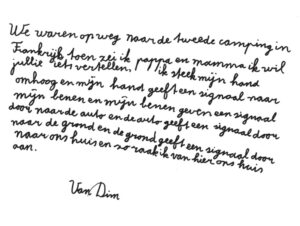 We waren op weg naar de tweede camping in
Frankrijk toen zei ik pappa en mamma ik wil
jullie iets vertellen, ik steek mijn hand
omhoog en mijn hand geeft een signaal naar
mijn benen en mijn benen geven een signaal
door naar de auto en de auto geeft een signaal door
naar de grond en de grond geeft een signaal door
naar ons huis en zo raak ik van hier ons huis
aan.
Van Dim